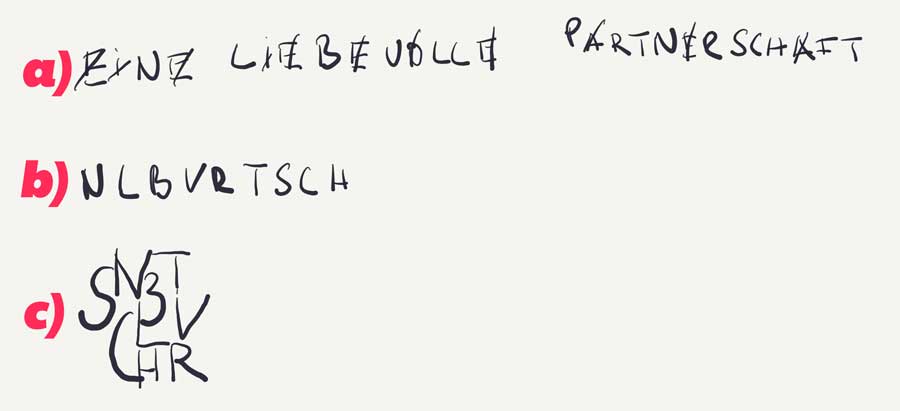 a) EINE LIEBEVOLLE PARTNERSCHAFT
b) NLBVRTSCH
c) SNBT
LV
CHR